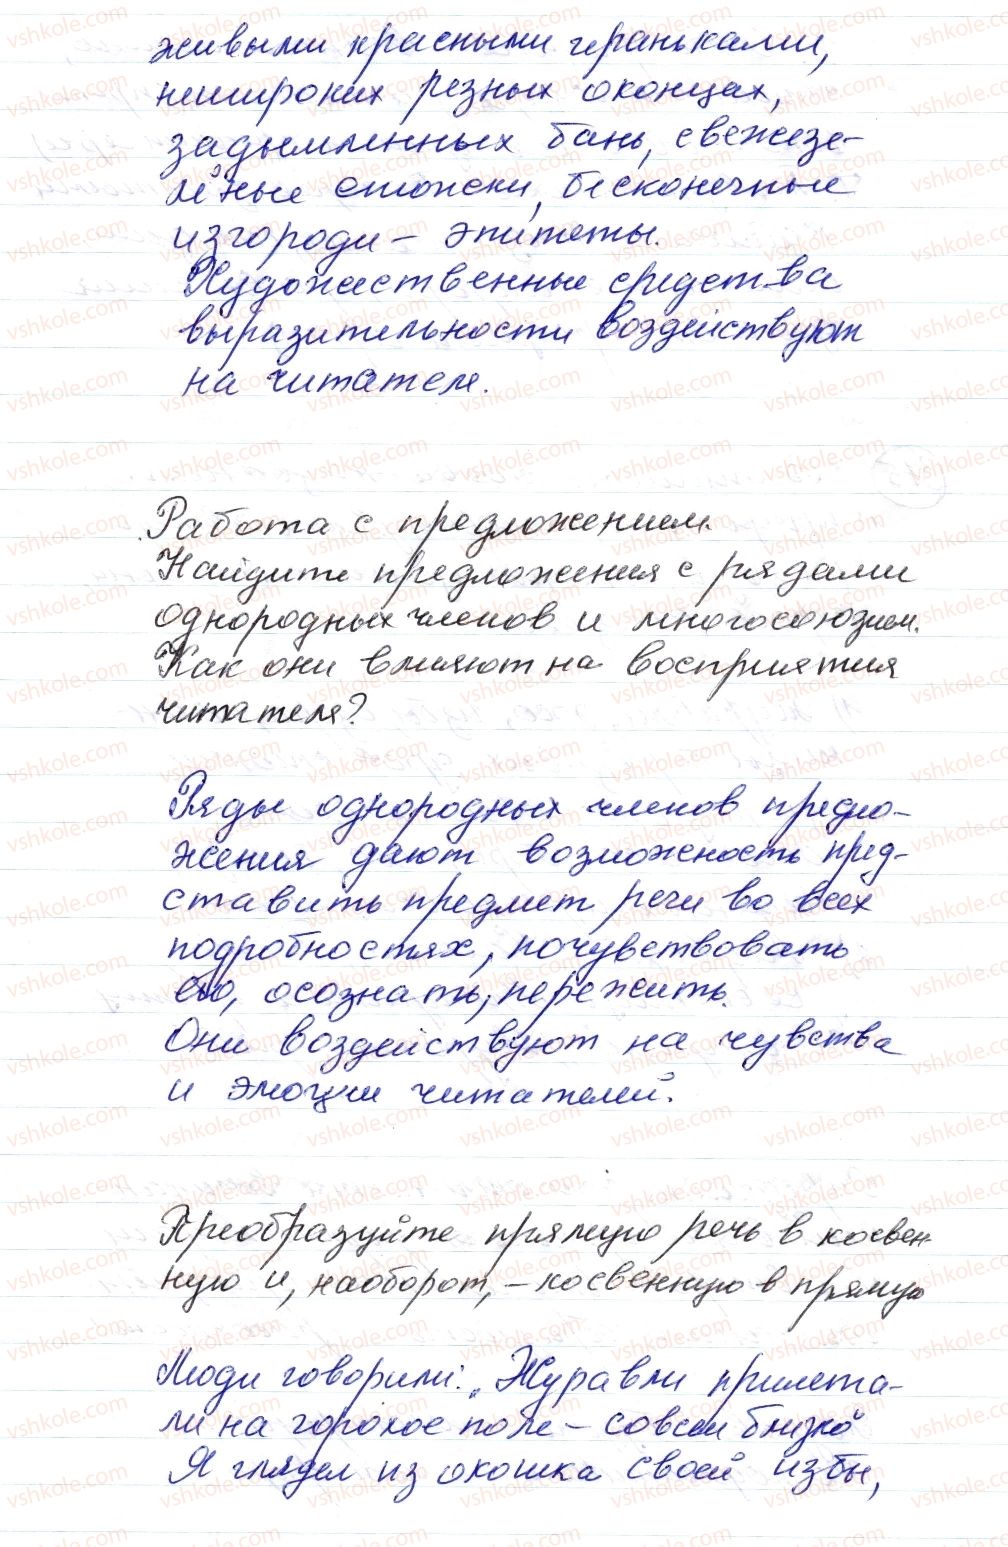 живыми красными геранька​ми,
нешироких резных оконцах,
задымленных бань, свежезе-
лёные стожки, бесконечные
изгороди – эпитеты.
Художественные средства
выразительности воздействуют
на читателя.
Работа с предложением.
Найдите предложения с рядами
однородных членов и многосоюзием.
Как они влияют на восприятия
читателя?
Ряды однородных членов предло-
жения дают возможность пред-
ставить предмет речи во всех
подробностях, почувствовать
его, осознать, пережить.
Они воздействуют на чувства
и эмоции читателей.
Преобразуйте прямую речь в косвен-
ную и, наоборот, – косвенную в прямую
Люди говорили: „Журавли прилета-
ли на гороховое поле – совсем близко
Я глядел из окошка своей избы,
vshkole.com